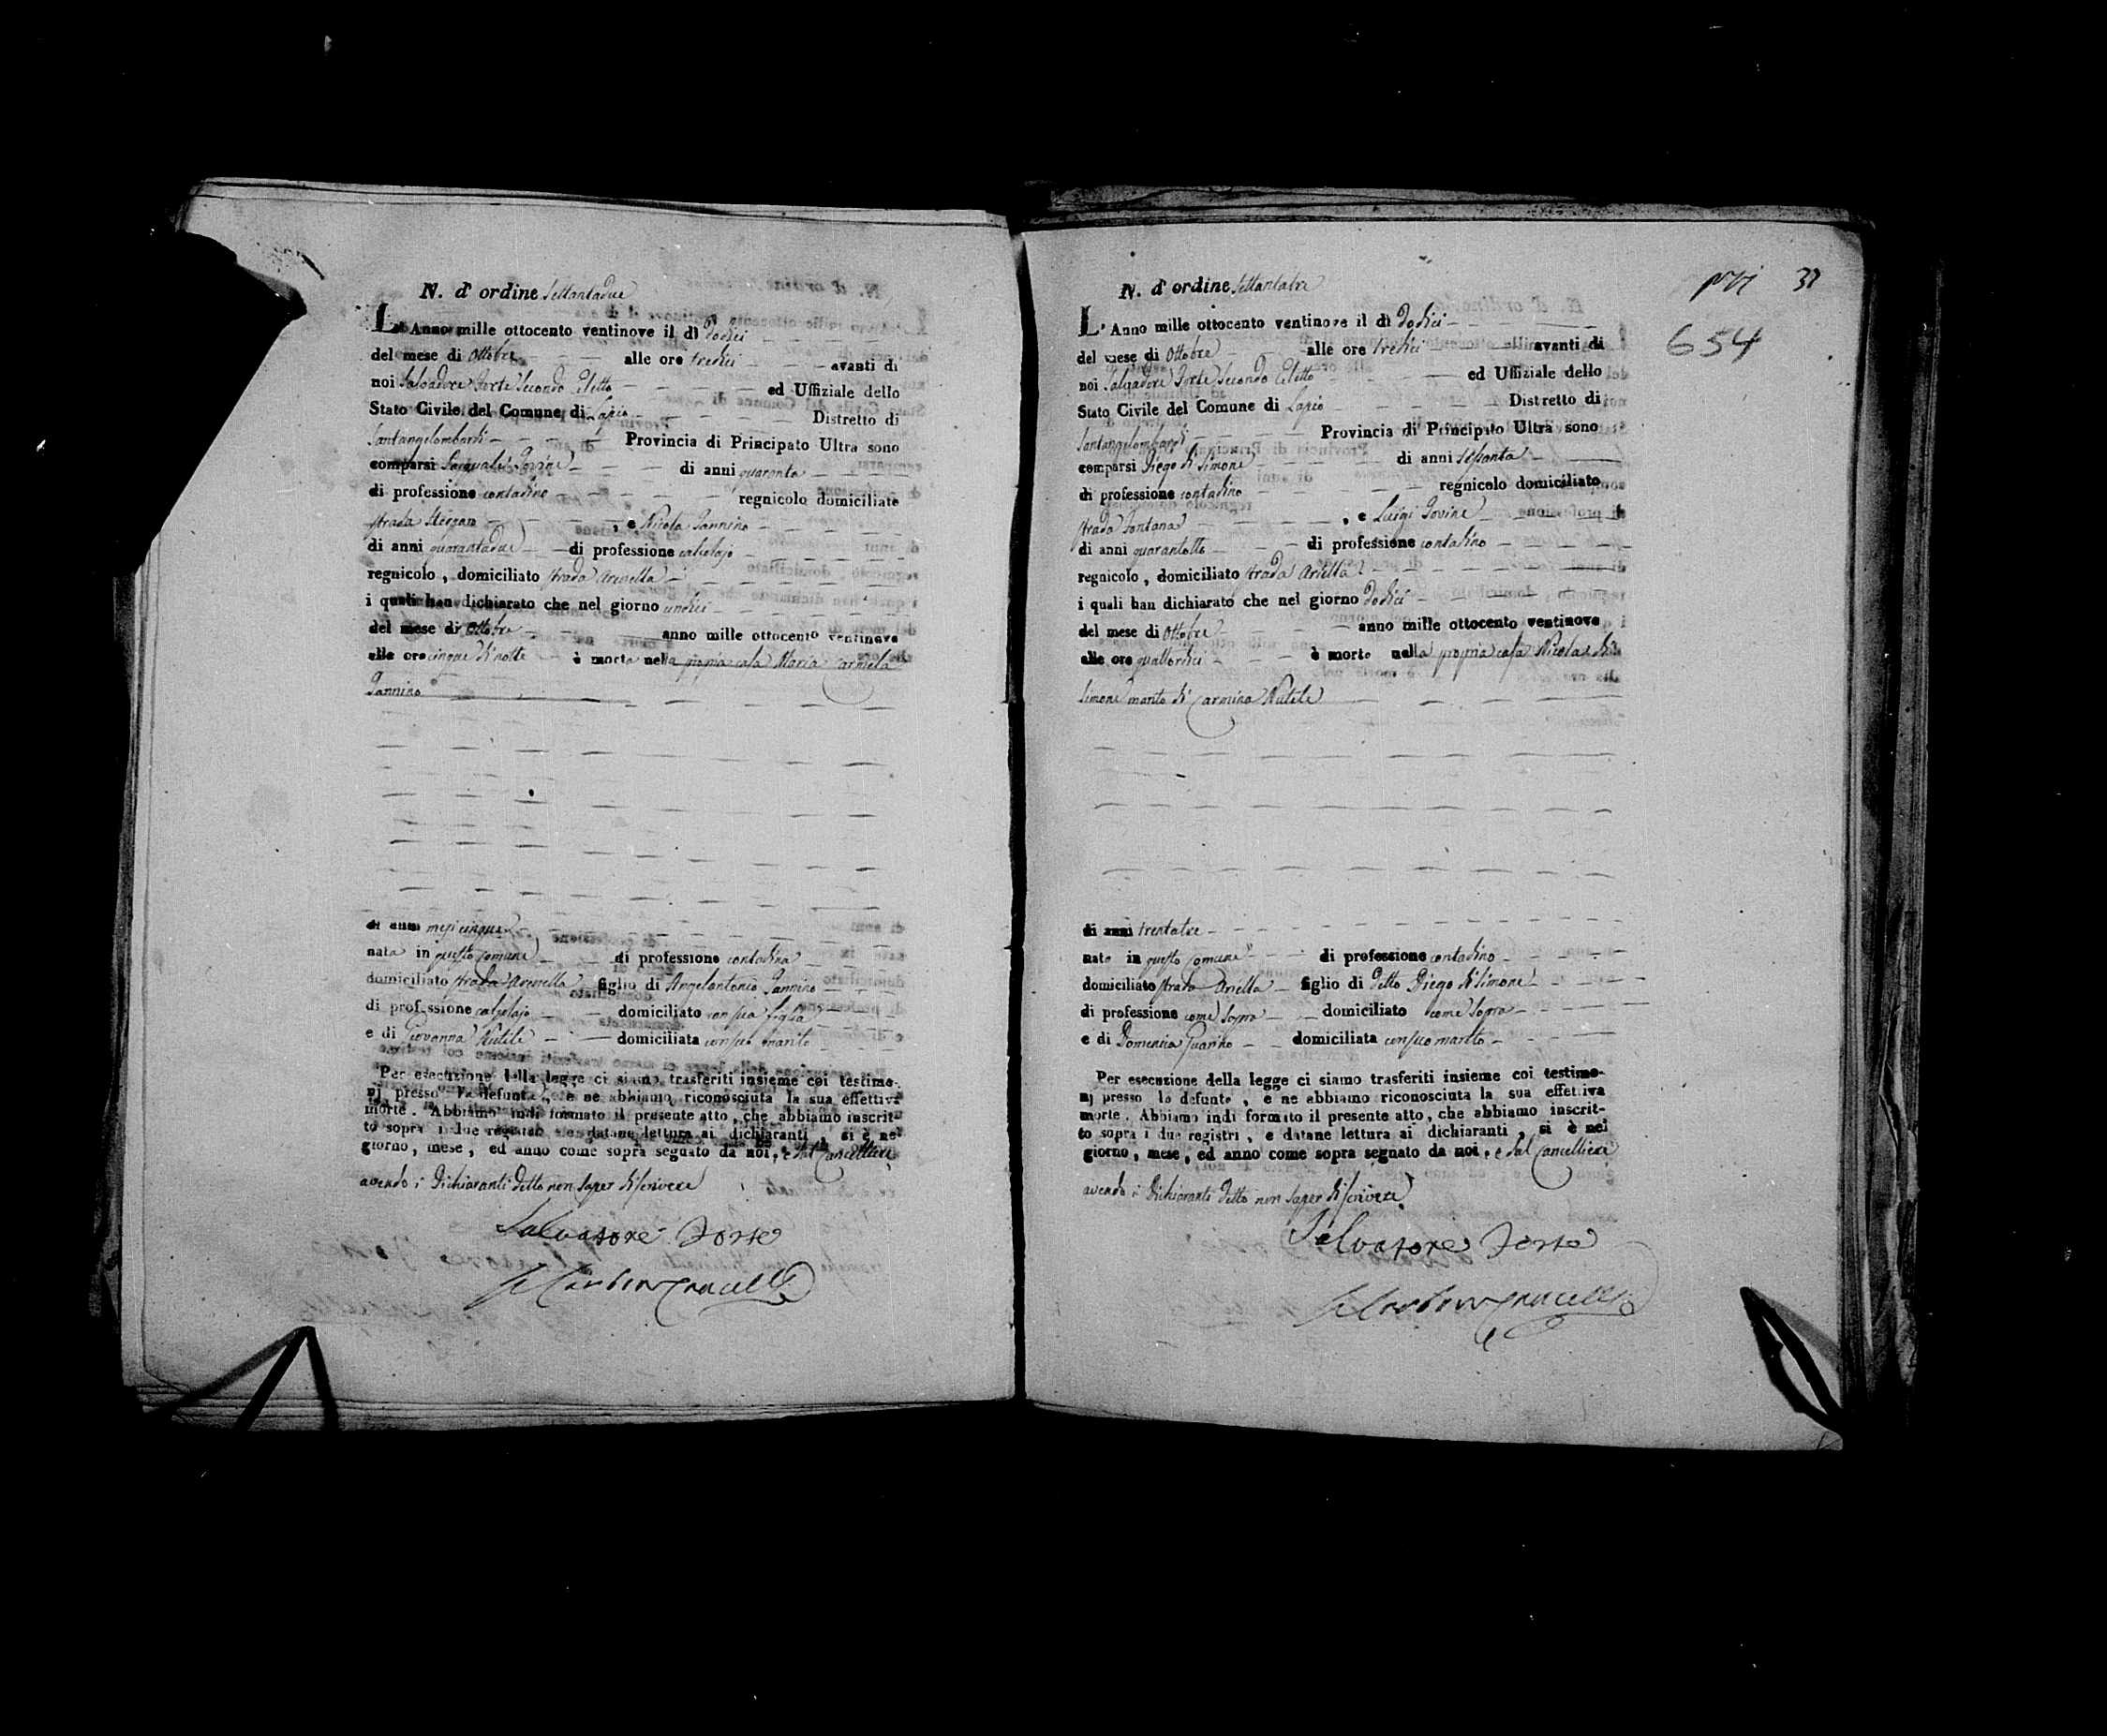 N. d' ordine Settantadue
L' Anno mille ottocento ventinove il dì dodici
del mese di Ottobre alle ore tredici avanti di
noi Salvadore Forte Secondo Eletto ed Uffiziale dello
Stato Civile del Comune di Lapio Distretto di
Santangelombardi Provincia di Principato Ultra sono
comparsi Pasquale Iovine di anni quaranta
di professione contadino regnicolo domiciliato
strada , e Nicola Iannino
di anni quarantadue di professione calzolajo
regnicolo , domiciliato strada Arenella
i quali han dichiarato che nel giorno undici
del mese di Ottobre anno mille ottocento ventinove
alle ore cinque di notte è morta nella propria casa Maria Carmela
Iannino
di anni mesi cinque
nata in questo comune di professione contadina
domiciliato strada Arenella figlio di Angelantonio Iannino
di professione calzolajo domiciliato con sua figlia
e di Giovanna Nutile domiciliata con suo marito
Per esecuzione della legge ci siamo trasferiti insieme coi testimo-
nj presso la defunta , e ne abbiamo riconosciuta la sua effettiva
morte . Abbiamo indi formato il presente atto , che abbiamo inscrit-
to sopra i due registri e datane lettura ai dichiaranti , si è nel
giorno , mese , ed anno come sopra segnato da noi , e dal Cancelliere
avendo i Dichiaranti detto non saper di scrivere
Salvatore Forte
N. d' ordine Settantatre
L' Anno mille ottocento ventinove il dì dodici
del mese di Ottobre alle ore tredici avanti di
noi Salvadore Forte Secondo Eletto ed Uffiziale dello
Stato Civile del Comune di Lapio Distretto di
Santangelombardi Provincia di Principato Ultra sono
comparsi Diego di Simone di anni sessanta
di professione contadino regnicolo domiciliato
strada Fontana , e Luigi Iovine
di anni quarantotto di professione contadino
regnicolo , domiciliato strada Ariella
i quali han dichiarato che nel giorno dodici
del mese di Ottobre anno mille ottocento ventinove
alle ore quattordici è morto nella propria casa Nicola di
Simone marito di Carmina Nutile
di anni trentatre
nato in questo comune di professione contadino
domiciliato strada Ariella figlio di detto Diego di Simone
di professione come sopra domiciliato come sopra
e di Domenica Guarino domiciliata con suo marito
Per esecuzione della legge ci siamo trasferiti insieme coi testimo-
nj presso lo defunto , e ne abbiamo riconosciuta la sua effettiva
morte . Abbiamo indi formato il presente atto , che abbiamo inscrit-
to sopra i due registri , e datane lettura ai dichiaranti , si è nel
giorno , mese , ed anno come sopra segnato da noi , e dal Cancelliere
avendo i Dichiaranti detto non saper di scrivere
Salvatore Forte
654